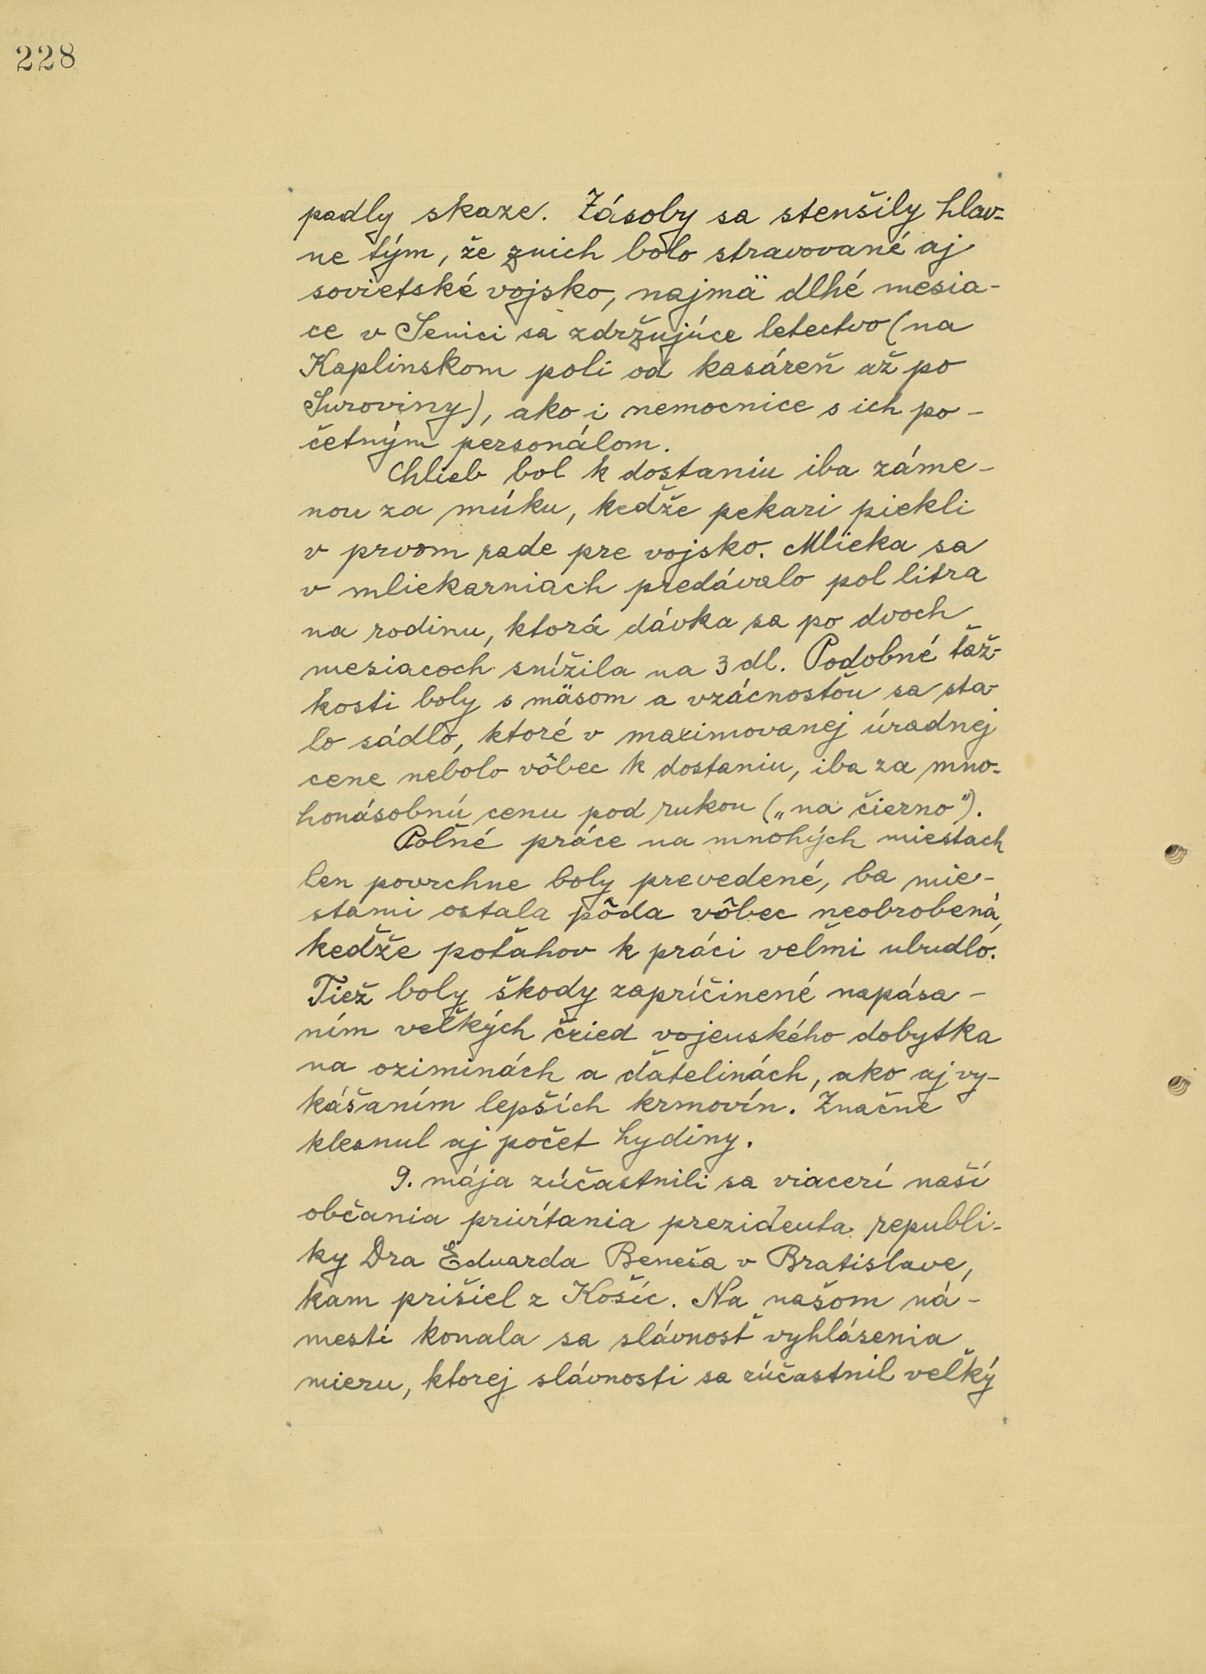 228
padly skaze. Zásoby sa stenšily hlav-
ne tým, že znich bolo stravované aj
sovietské vojsko, najmä dlhé mesia-
ce v Senici sa zdržujúce letectvo (na
Kaplinskom poli od kasáreň až po
Suroviny), ako i nemocnice s ich po-
četným personálom.
Chlieb bol k dostaniu iba záme-
nou za múku, kedže pekari piekli
v prvom rade pre vojsko. Mlieka sa
v mliekarniach predávalo pol litra
na rodinu, ktorá dávka sa po dvoch
mesiacoch snížila na 3 dl. Podobné ťaž-
kosti boly s mäsom a vzácnosťou sa sta-
lo sádlo, ktoré v maximovanej úradnej
cene nebolo vôbec k dostaniu, iba za mno-
honásobnú cenu pod rukou („na čierno").
Poľné práce na mnohých miestach
len povrchne boly prevedené, ba mie-
stami ostala pôda vôbec neobrobená,
keďže poťahov k práci veľmi ubudlo.
Tiež boly škody zapríčinené napása-
ním veľkých čried vojenského dobytka
na oziminách a ďatelinách, ako aj vy-
kášaním lepších krmovín. Značne
klesnul aj počet hydiny.
9. mája zúčastnili sa viacerí naší
občania privítania prezidenta republi-
ky Dra Eduarda Beneša v Bratislave,
kam prišiel z Košíc. Na našom ná-
mestí konala sa slávnosť vyhlásenia
mieru, ktorej slávnosti sa zúčastnil veľký